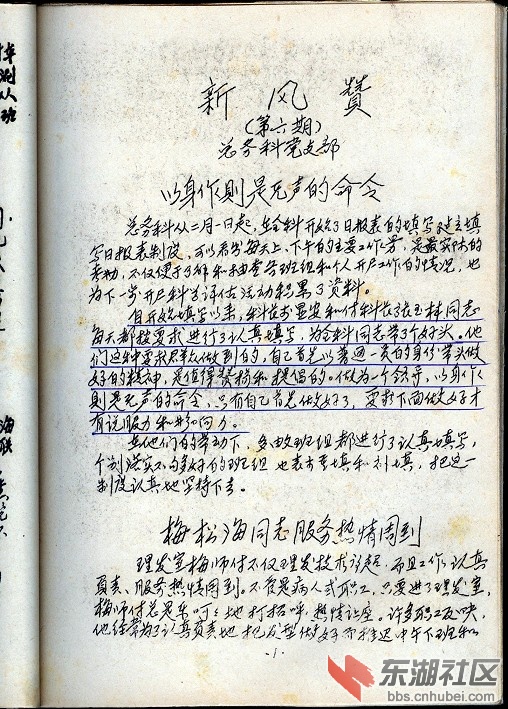 新风赞
（第六期）
总务科党支部
以身作则是无声的命令
总务科从二月一日起，在全科开始了日报表的填写，建立填
写日报表制度，可以看出每天上、下午的主要工作量，是最实际的
劳动，不仅便于了解和抽查各班组和个人开展工作的情况，也
为下一步开展科学评估活动积累了资料。
自开始填写以来，科长 和付科长 林同志
每天都按要求进行了认真填写，为全科同志带了个好头。他
们这种要求群众做到的，自己首先以普通一员的身份带头做
好的精神，是值得赞扬和提倡的。做为一个领导，以身作
则是无声的命令，只有自己首先做好了，要求下面做好才
有说服力和影响力。
在他们的带动下，多数班组都进行了认真填写，
个别落实不够好的班组也表示重填和补填，把这一
制度认真地坚持下去。
梅松海同志服务热情周到
理发室梅师付不仅理发技术 ，而且工作认真
负责，服务热情周到。不管是病人或职工，只要进了理发室，
梅师付总是乐呵呵地打招呼，热情让座。许多职工反映，
他经常为了认真负责地把发型做好而推迟中午下班和
1
东湖社区
bbs.cnhubei.com